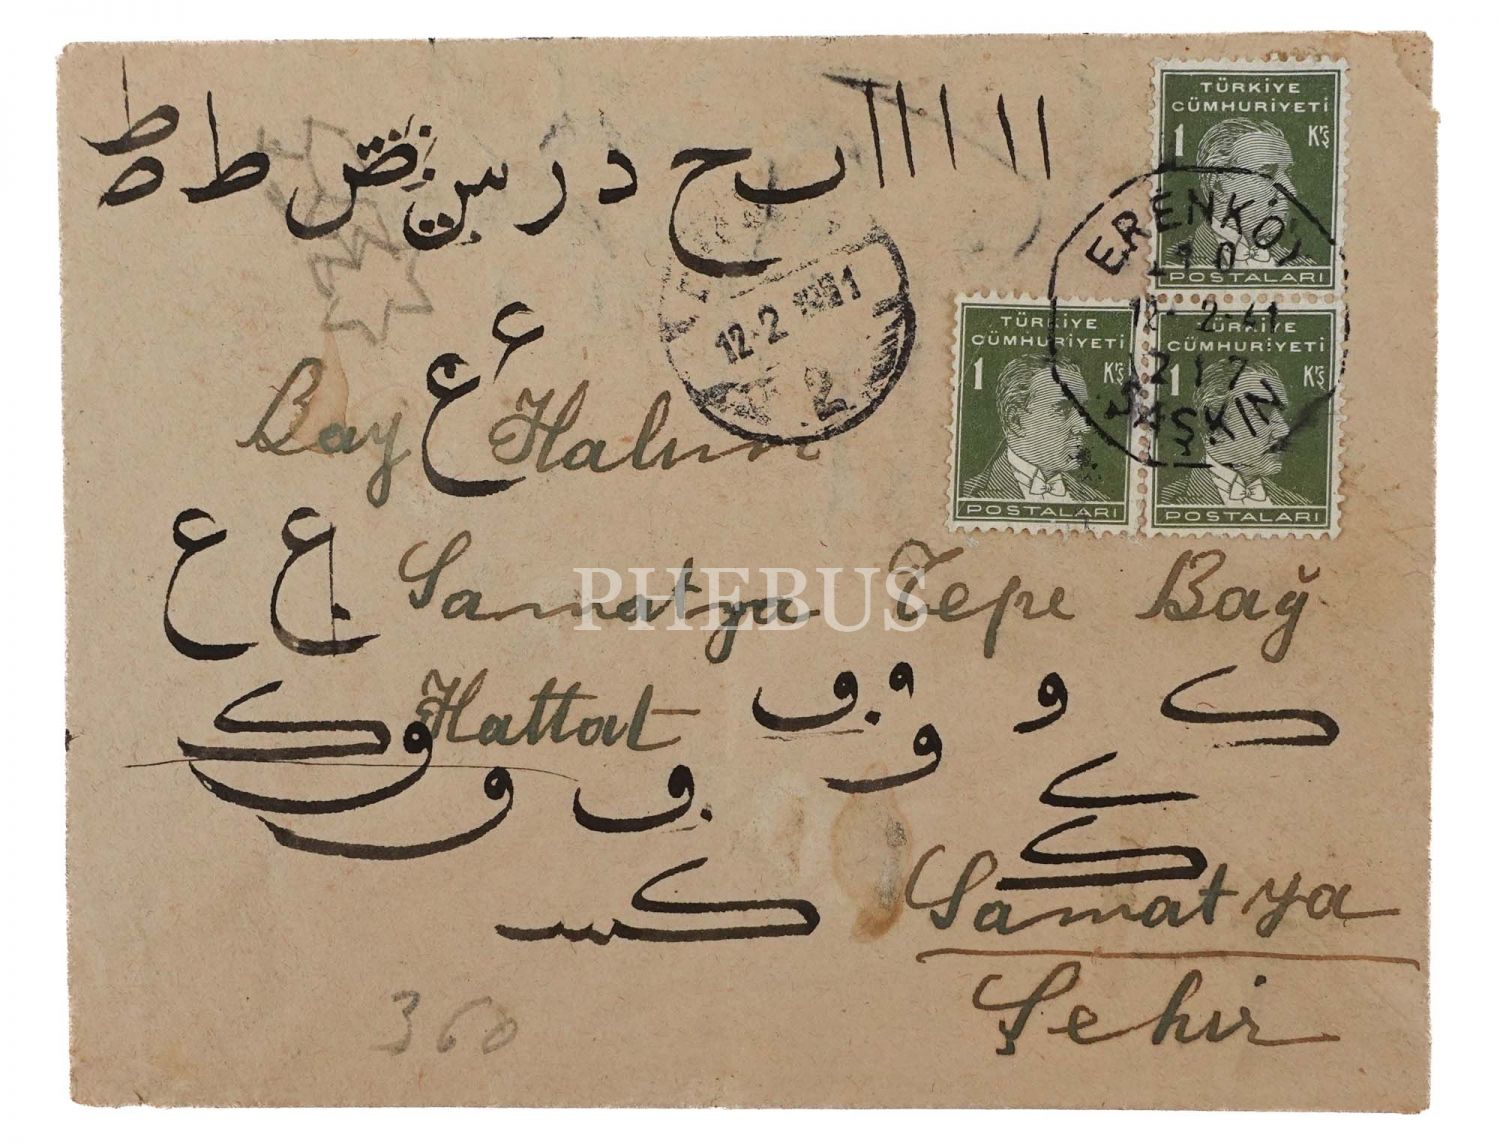 TÜRKİYE
CÜMHURİYETİ
1 Krş
POSTALARI
TÜRKİYE
CÜMHURİYETİ
1 Krş
POSTALARI
TÜRKİYE
CÜMHURİYETİ
1 Krş
POSTALARI
ERENKÖY
12-2-41
12 17
12-2-1941
2
ا ا ا ا ا ا ا ب ح د ر س ص ط ط
ع
ع
Bay Halim
ع ع
Samatya Tepe Bağ
Hattat
ک و ف و
و ف و
ک
ک
کس
Samatya
Şehir
360
PHEBUS